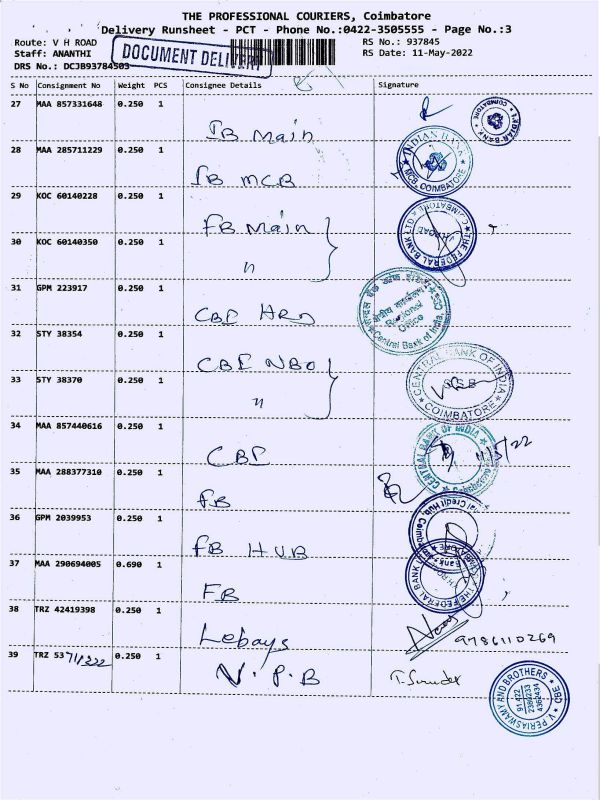 THE PROFESSIONAL COURIERS, Coimbatore
Delivery Runsheet - PCT - Phone No.:0422-3505555 - Page No.:3
Route: V H ROAD RS No.: 937845
Staff: ANANTHI DOCUMENT DELIVERY RS Date: 11-May-2022
DRS No.: DCJB93784503
S No Consignment No Weight PCS Consignee Details Signature
27 MAA 857331648 0.250 1 IB Main
28 MAA 285711229 0.250 1 IB MCB INDIAN BANK MCB, COIMBATORE
29 KOC 60140228 0.250 1 FB Main THE FEDERAL BANK LTD
30 KOC 60140350 0.250 1 n
31 GPM 223917 0.250 1 CBI HRD क्षेत्रीय कार्यालय Regional Office Central Bank of India
32 STY 38354 0.250 1 CBI NBO CENTRAL BANK OF INDIA
33 STY 38370 0.250 1 n COIMBATORE
34 MAA 857440616 0.250 1 CBI CENTRAL BANK OF INDIA 11/5/22
35 MAA 288377310 0.250 1 FB
36 GPM 2039953 0.250 1 FB HUB Credit Hub, Coimbatore
37 MAA 290694005 0.690 1 FB THE FEDERAL BANK
38 TRZ 42419398 0.250 1 Lebays 9786110269
39 TRZ 53711322 0.250 1 V.P.B
V. PERIASWAMY AND BROTHERS CBE